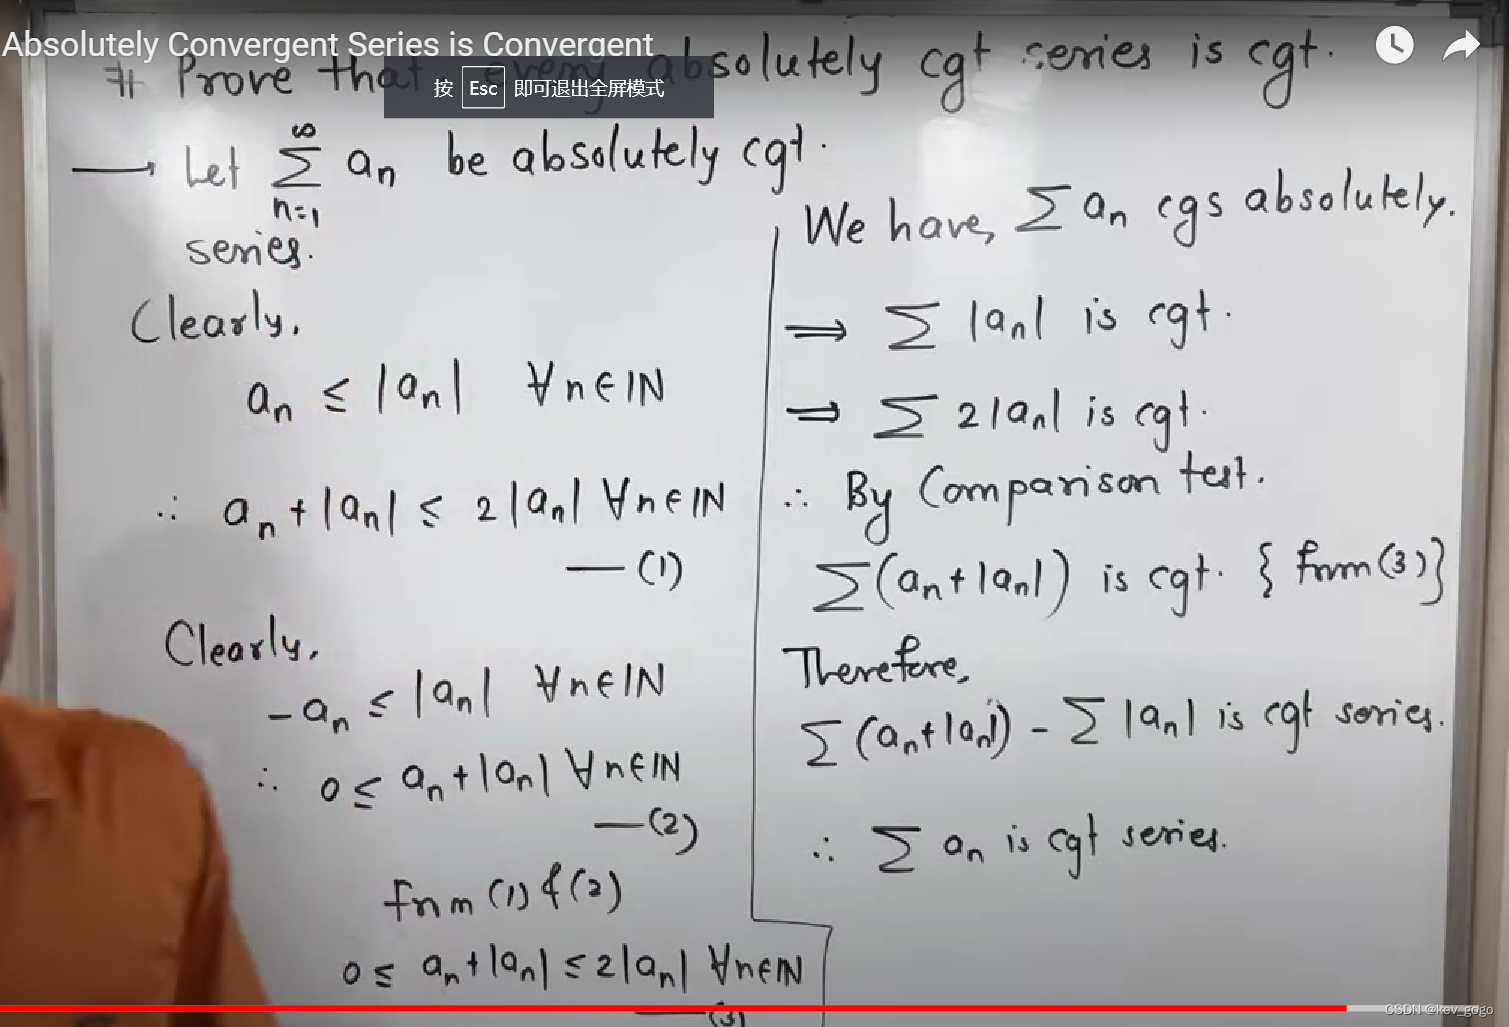 Absolutely Convergent Series is Convergent
# Prove that every absolutely cgt series is cgt.
按 Esc 即可退出全屏模式
→ Let ∞∑n=1 an be absolutely cgt.
series.
Clearly,
an ≤ |an| ∀n∈ℕ
∴ an + |an| ≤ 2|an| ∀n∈ℕ
—(1)
Clearly,
-an ≤ |an| ∀n∈ℕ
∴ 0 ≤ an + |an| ∀n∈ℕ
—(2)
from (1) & (2)
0 ≤ an + |an| ≤ 2|an| ∀n∈ℕ
—(3)
We have, ∑ an cgs absolutely.
⟹ ∑ |an| is cgt.
⟹ ∑ 2|an| is cgt.
∴ By Comparison test.
∑(an + |an|) is cgt. { from (3)}
Therefore,
∑(an + |an|) - ∑ |an| is cgt series.
∴ ∑ an is cgt series.
CSDN @kev_gogo